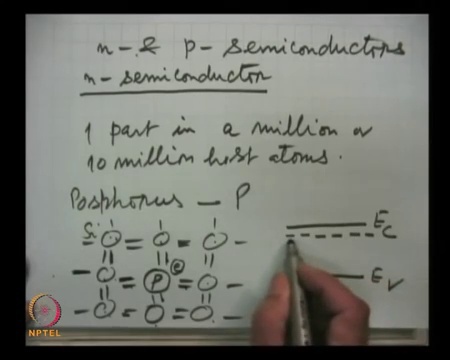 n- & p- semiconductors
n- semiconductor
1 part in a million or
10 million host atoms.
Posphorus - P
Si
e
P
E_C
E_V
NPTEL